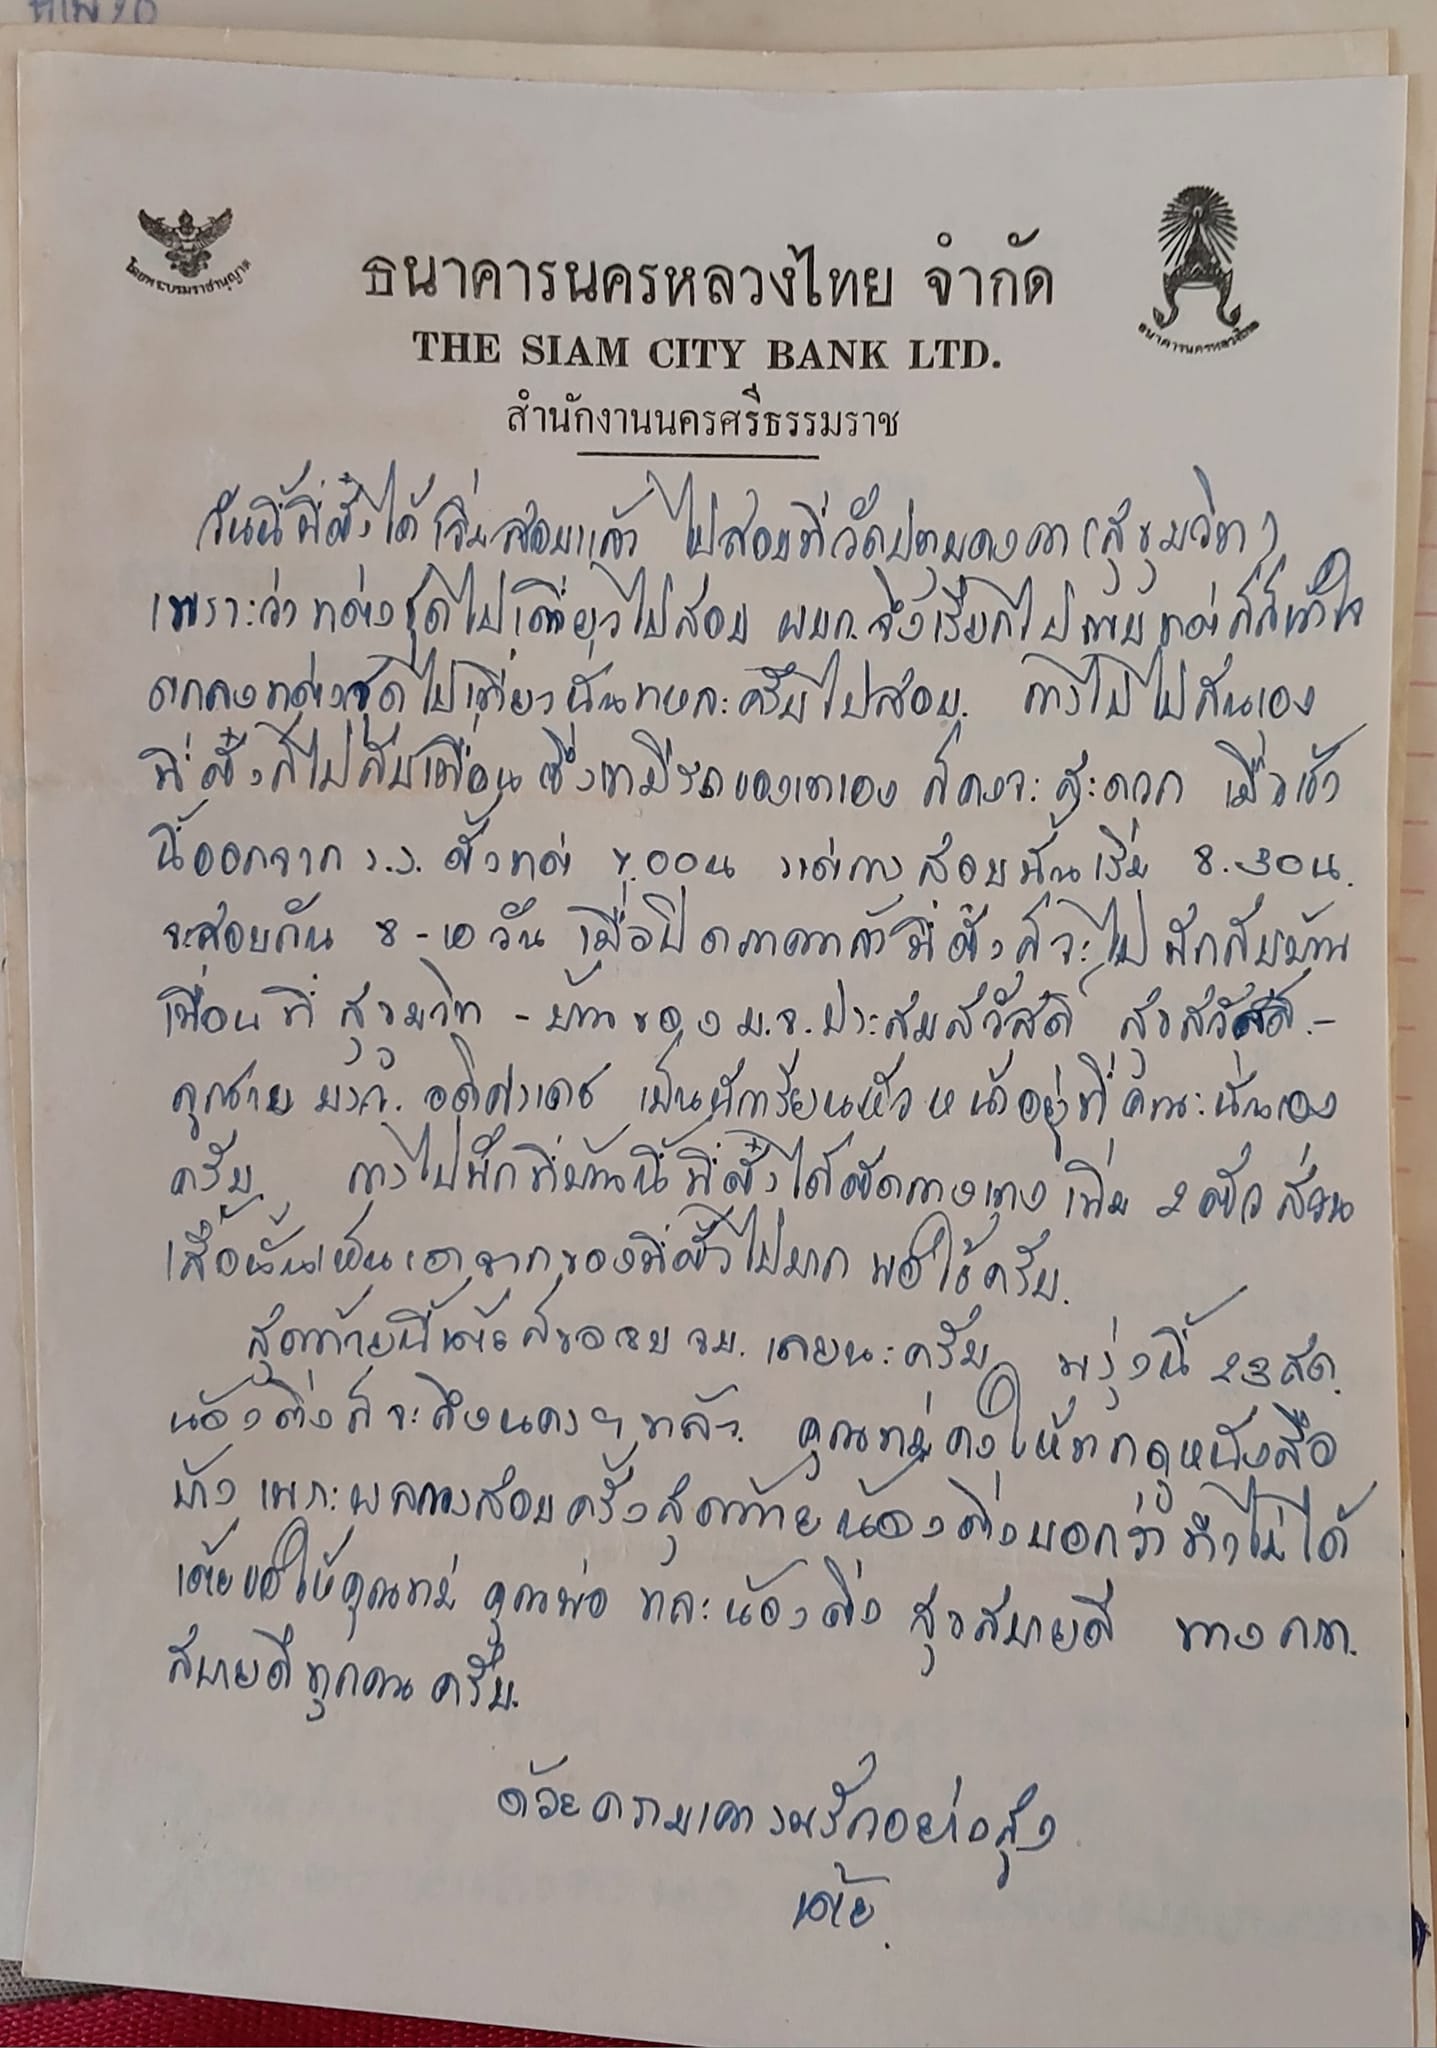 โดยพระบรมราชานุญาต
ธนาคารนครหลวงไทย จำกัด
THE SIAM CITY BANK LTD.
ธนาคารนครหลวงไทย
สำนักงานนครศรีธรรมราช
วันนี้พี่ตั้งได้เริ่มสอบแล้ว ไปสอบที่วัดปทุมคงคา (สุขุมวิท)
เพราะว่า ชุดไปเที่ยวไปสอบ ผบก. จึงเรียกไปพบ ก็เข้าใจ
ตกลง ชุดไปเที่ยวนั้นแหละครับไปสอบ. การไปไปกันเอง
พี่ตั้งก็ไปกับเพื่อนซึ่งเขามีรถของเขาเอง ก็คงจะสะดวก เมื่อเช้า
นี้ออกจาก ร.ร. ตั้งแต่ ๗.๐๐น แต่การสอบนั้นเริ่ม 8.30น.
จะสอบกัน 8-10 วัน เมื่อปิดภาคแล้วพี่ตั้งก็จะไปพักกับบ้าน
เพื่อนที่สุขุมวิท - บ้านของ ม.จ.ประสมสวัสดิ์ สุขสวัสดิ์.-
คุณชาย เป็นนักเรียนหัวหน้าอยู่ที่คณะนั่นเอง
ครับ. การไปพักที่บ้านนี้พี่ตั้งได้ตัดกางเกงเพิ่ม 2 ตัว ส่วน
เสื้อนั้นเห็นเอาจากของพี่ตั้วไปมาก พอใช้ครับ.
สุดท้ายนี้เต้ยก็ขอจบ จม. เลยนะครับ พรุ่งนี้ 23 สค.
น้องติ่งก็จะถึงนครฯแล้ว. คุณแม่คงให้ ดูหนังสือ
บ้าง เพราะผลการสอบครั้งสุดท้ายน้องติ่งบอกว่าทำไม่ได้
เต้ยขอให้คุณแม่ คุณพ่อ และน้องติ่ง สุขสบายดี ทาง กท.
สบายดีทุกคนครับ.
ด้วยความเคารพรักอย่างสูง
เต้ย.